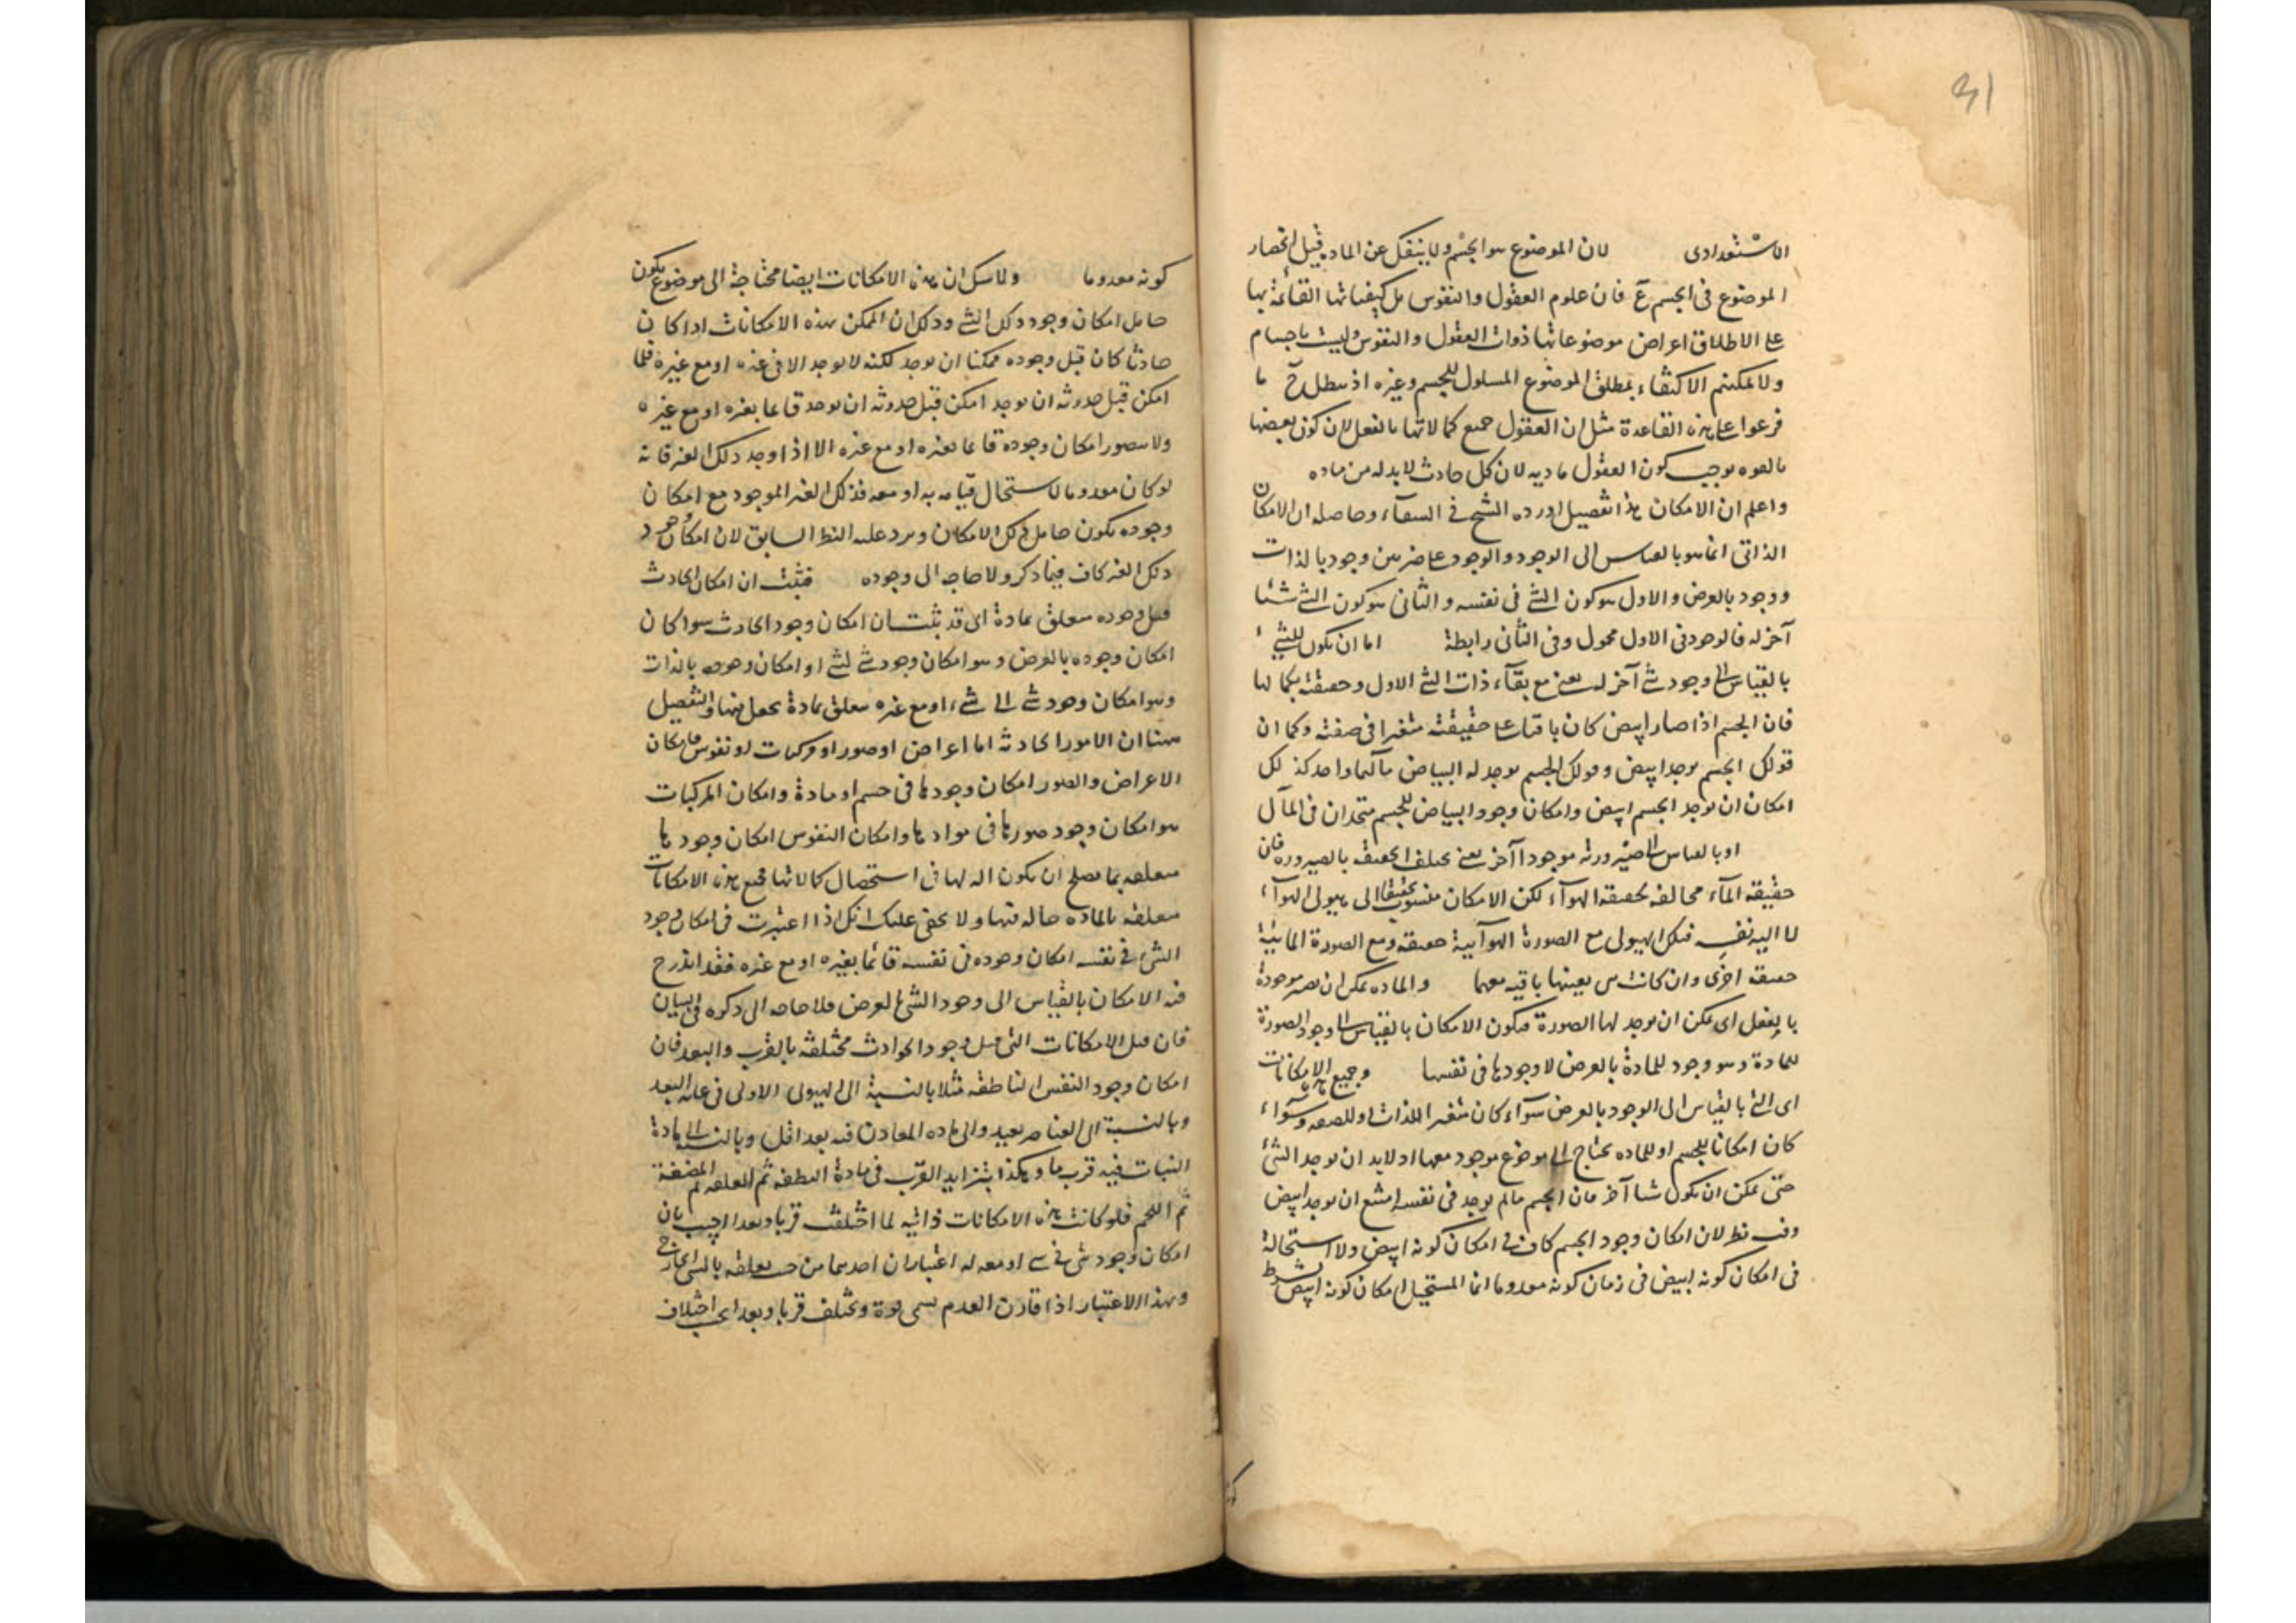 31
الاستعدادى لان الموضوع هو الجسم ولا ينفك عن الماده قيل انحصار
الموضوع فى الجسم ع فان علوم العقول والنفوس بل كيفياتها القائمة بها
على الاطلاق اعراض موضوعاتها ذوات العقول والنفوس وليست باجسام
ولا يمكنهم الاكتفاء بمطلق الموضوع للجسم وغيره اذ يبطل ح ما
فرعوا على هذه القاعدة مثل ان العقول جميع كمالاتها بالفعل لان كون بعضها
بالقوه يوجب كون العقول ماديه لان كل حادث لا بد له من ماده
واعلم ان الامكان هذا تفصيل اورده الشيخ فى الشفآء وحاصله ان الامكان
الذاتى انما هو بالقياس الى الوجود والوجود على ضربين وجود بالذات
ووجود بالعرض والاول هو كون الشئ فى نفسه والثانى هو كون الشئ شئا
آخر له فالوجود فى الاول محمول وفى الثانى رابطة اما ان يكون للشئ
بالقياس الى وجود شئ آخر له يعنى مع بقآء ذات الشئ الاول وحقيقته بكمالها
فان الجسم اذا صار ابيض كان باقيا على حقيقته متغيرا فى صفته وكما ان
قولك الجسم يوجد ابيض وقولك الجسم يوجد له البياض مآلهما واحد كذلك
امكان ان يوجد الجسم ابيض وامكان وجود البياض للجسم متحدان فى المآل
او بالقياس الى صيرورته موجودا آخر يعنى يختلف الحقيقة بالصيروره فان
حقيقة المآء مخالفه لحقيقة الهوآء لكن الامكان منسوب حقيقة الى هيولى الهوآء
لا اليه نفسه فتلك الهيولى مع الصورة الهوآئية حقيقه ومع الصورة المائية
حقيقه اخرى وان كانت هى بعينها باقيه معهما والماده يمكن ان تصير موجودة
بالفعل اى يمكن ان يوجد لها الصورة فيكون الامكان بالقياس الى وجود الصورة
للمادة وهو وجود للمادة بالعرض لا وجودها فى نفسها وجميع هذه الامكانات
اى التى بالقياس الى الوجود بالعرض سوآء كان متغير الذات او للصفه وسوآء
كان امكانا للجسم او للماده يحتاج الى موضوع موجود معها اذ لا بد ان يوجد الشئ
حتى يمكن ان يكون شيا آخر فان الجسم مالم يوجد فى نفسه امتنع ان يوجد ابيض
وفيه نظر لان امكان وجود الجسم كاف فى امكان كونه ابيض ولا استحالة
فى امكان كونه ابيض فى زمان كونه معدوما انما المستحيل امكان كونه ابيض بشرط
كونه معدوما ولا شك ان هذه الامكانات ايضا محتاجة الى موضوع يكون
حامل امكان وجود ذلك الشئ وذلك ان الممكن بهذه الامكانات اذا كان
حادثا كان قبل وجوده ممكنا ان يوجد لكنه لا يوجد الا فى غيره او مع غيره فلما
امكن قبل حدوثه ان يوجد امكن قبل حدوثه ان يوجد قائما بغيره او مع غيره
ولا يتصور امكان وجوده قائما بغيره او مع غيره الا اذا وجد ذلك الغير فانه
لو كان معدوما لاستحال قيامه به او معه فذلك الغير الموجود مع امكان
وجوده يكون حامل ذلك الامكان ويرد عليه النظر السابق لان امكان وجود
ذلك الغير كاف فيما ذكر ولا حاجه الى وجوده فثبت ان امكان الحادث
قبل وجوده متعلق بمادة اى قد ثبت ان امكان وجود الحادث سوا كان
امكان وجوده بالعرض وهو امكان وجود شئ لشئ او امكان وجوده بالذات
وهو امكان وجود شئ فى شئ او مع غيره متعلق بمادة والتفصيل
هنا ان الامور الحادثه اما اعراض او صور او مركبات او نفوس فامكان
الاعراض والصور امكان وجودها فى جسم او مادة وامكان المركبات
هو امكان وجود صورها فى موادها وامكان النفوس امكان وجودها
متعلقه بما يصلح ان يكون اله لها فى استحصال كمالاتها فجميع هذه الامكانات
متعلقه بالماده حاله فيها ولا يخفى عليك انك اذا اعتبرت فى امكان وجود
الشئ فى نفسه امكان وجوده فى نفسه قائما بغيره او مع غيره فقد اندرج
فيه الامكان بالقياس الى وجود الشئ بالعرض فلا حاجه الى ذكره فى البيان
فان قيل الامكانات التى قبل وجود الحوادث مختلفه بالقرب والبعد فان
امكان وجود النفس الناطقه مثلا بالنسبة الى الهيولى الاولى فى غايه البعد
وبالنسبة الى العناصر بعيد والى ماده المعادن فيه بعد اقل وبالنسبة الى مادة
النبات فيه قرب ما وهكذا يتزايد القرب فى مادة النطفه ثم العلقه ثم المضغة
ثم اللحم فلو كانت هذه الامكانات ذاتيه لما اختلفت قربا وبعدا اجيب بان
امكان وجود شئ فى شئ او معه له اعتباران احدهما من حيث تعلقه بالشئ الخارجى
وبهذا الاعتبار اذا قارن العدم يسمى قوة ويختلف قربا وبعدا بحسب اختلاف